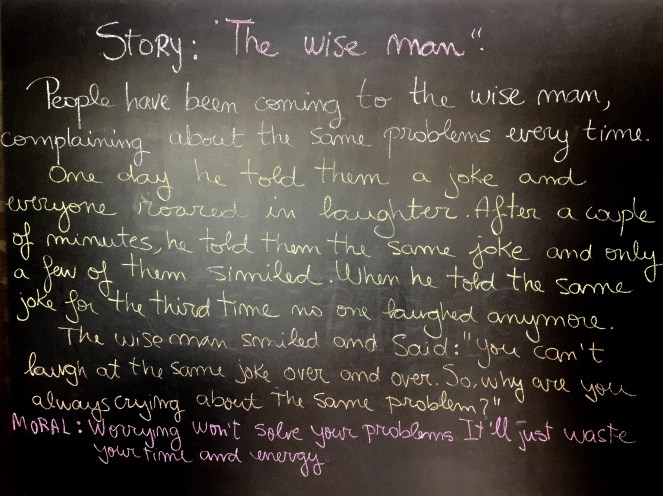 Story: "The wise man".
People have been coming to the wise man,
complaining about the same problems every time.
One day he told them a joke and
everyone roared in laughter. After a couple
of minutes, he told them the same joke and only
a few of them similed. When he told the same
joke for the third time no one laughed anymore.
The wise man smiled and said: "you can't
laugh at the same joke over and over. So, why are you
always crying about the same problem?"
MORAL: Worrying won't solve your problems. It'll just waste
your time and energy.